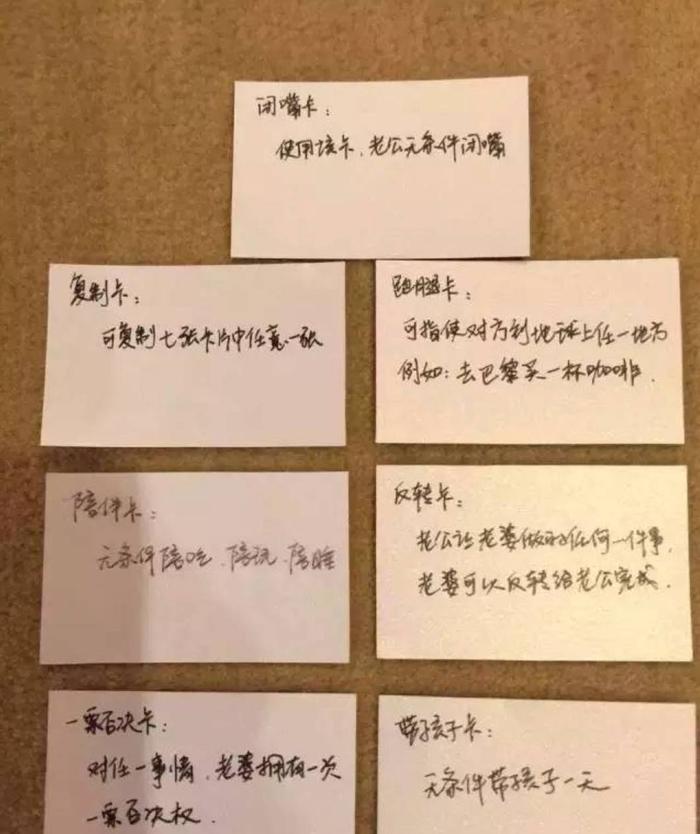 闭嘴卡：
使用该卡，老公无条件闭嘴
复制卡：
可复制七张卡片中任意一张
跑腿卡：
可指使对方到地球上任一地方
例如：去巴黎买一杯咖啡.
陪伴卡：
无条件陪吃、陪玩、陪睡
反转卡：
老公让老婆做的任何一件事,
老婆可以反转给老公完成.
一票否决卡：
对任一事情，老婆拥有一次
一票否决权.
带孩子卡：
无条件带孩子一天